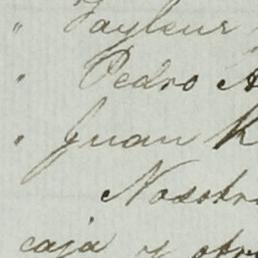 " Tayleur
" Pedro A
" Juan
Nosotr
caja y otr